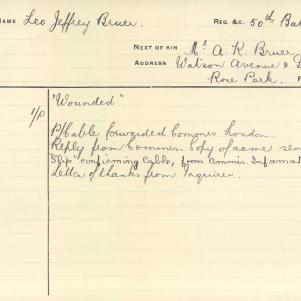 NAME Leo Jeffrey Bruer. REG. &C. 50th Bat
NEXT OF KIN Mr A. K. Bruer
ADDRESS Watson Avenue &
Rose Park.
"Wounded"
1/P P/Cable forwarded Commrs London.
Reply from Commrs. Copy of same sen
Slip confirming Cable, from Commis. Informat
Letter of thanks from Inquirer.